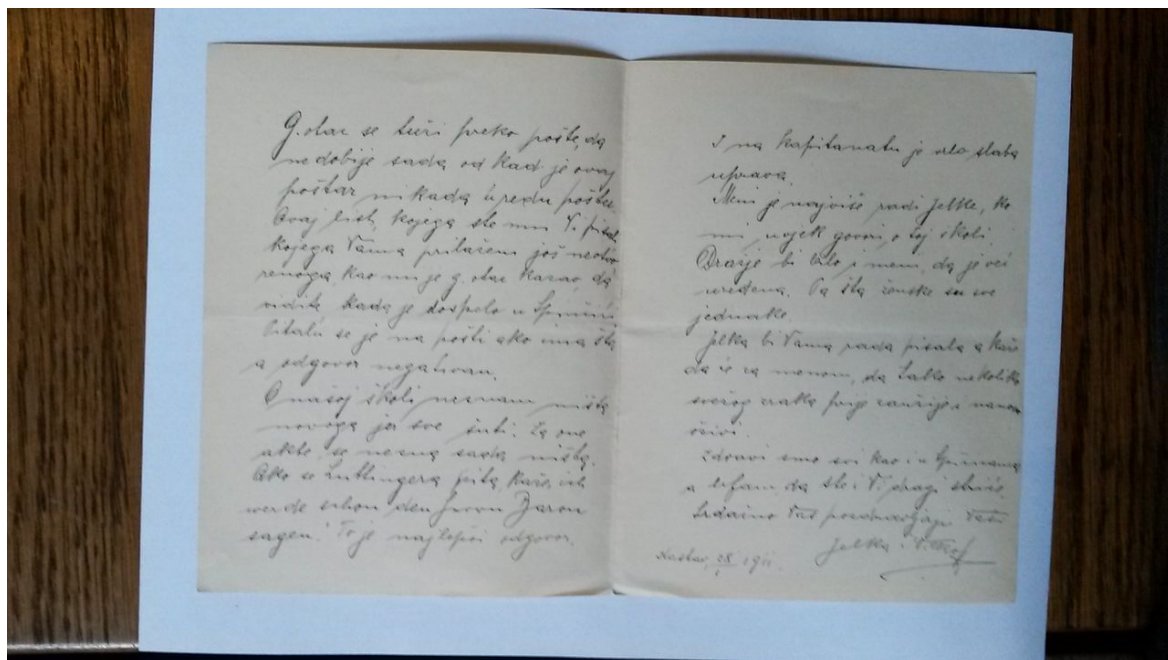 G. otac se tuži preko pošte, da
ne dobije sada od kad je ovaj
poštar nikada u redu poštu.
Ovaj list, kojega ste mu V. pisali
kojega Vama prilažem još neotvo
renoga, kao mi je g. otac kazao, da
vidite kada je dospelo u
Pitala se je na pošti ako ima šta
a odgovor negativan.
O našoj školi neznam ništa
novoga jer sve šuti. Za one
akte se nezna sada ništa.
Ako se Luttingera pita, kaže, ich
werde schon den Herrn Baron
sagen! To je najlepši odgovor.
I na kapitanatu je vrlo slaba
uprava.
Meni je najviše radi Jelke, ko
mi uvjek govori o toj školi.
Draže bi bilo i meni, da je već
uređena. Pa šta ženske su sve
jednake.
Jelka bi Vama rada pisala a kaže
da će za menom, da nekoliko
svežeg zraka prije i
oživi.
Zdravi smo svi kao i u
a ufam da ste i V. dragi striče.
Srdačno Vas pozdravljaju Vaši
Jelka i
Kastav, 28 1911